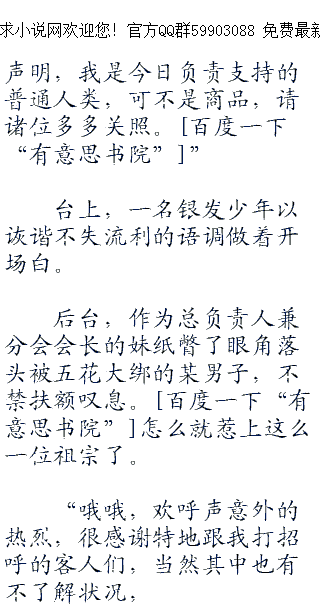 求小说网欢迎您！官方QQ群59903088 免费最新
声明，我是今日负责支持的
普通人类，可不是商品，请
诸位多多关照。[百度一下
“有意思书院”]”
台上，一名银发少年以
诙谐不失流利的语调做着开
场白。
后台，作为总负责人兼
分会会长的妹纸瞥了眼角落
头被五花大绑的某男子，不
禁扶额叹息。[百度一下“有
意思书院”]怎么就惹上这么
一位祖宗了。
“哦哦，欢呼声意外的
热烈，很感谢特地跟我打招
呼的客人们，当然其中也有
不了解状况，